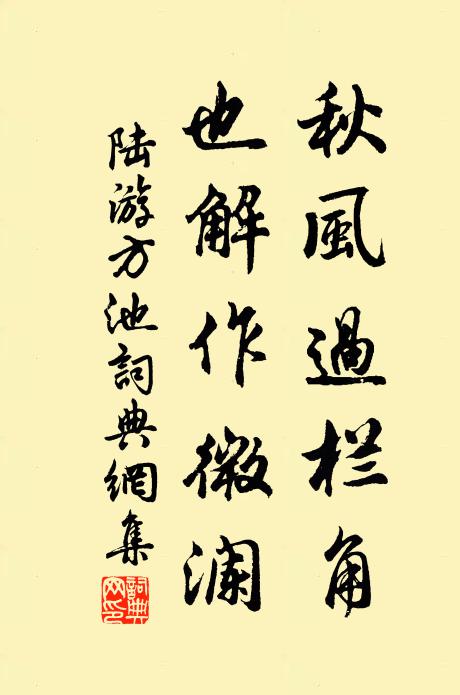 秋風過栏角
也解作微澜
陆游方池詞典網集
詞典网印